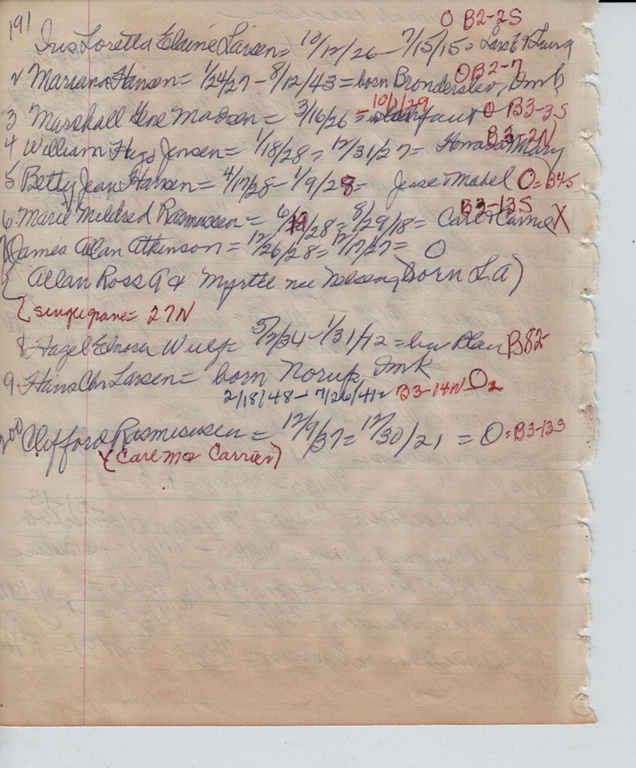 191 O B2-2S
Iris Loretta Elaine Larsen = 10/12/26 - 7/15/15 = Lars & Laura
OB2-7
2 Mariane Hansen = 1/24/27 - 8/12/43 = born Bronderslev, Dmk
= 10/1/29
3 Marshall Gene Madsen = 3/16/26 = infant O B3-3S
B3-2N
4 William Hugo Jensen = 1/18/28 = 12/31/27 = & Mary
5 Betty Jean Hansen = 4/17/28 - 1/9/28 = Jesse & Mabel O = B4S
B3-13S
6. Marie Mildred Rasmussen = 6/19/28 = 8/29/18 = Carl & X
7 James Allan Atkinson = 12/26/28 = 12/17/27 = O
{ Allan Ross A & Myrtle nee Nelsen (born LA)
{ single grave = 27N
8 Hazel Elnora Wulf = 5/2/34 - 1/31/12 = B82-
9. Hans Chr Larsen = born Norup, Dmk
2/18/48 - 7/26/41 = B3-14N O2
200 Clifford Rasmussen = 12/9/37 = 12/30/21 = O = B3-13S
X (Carl M & Carrier)